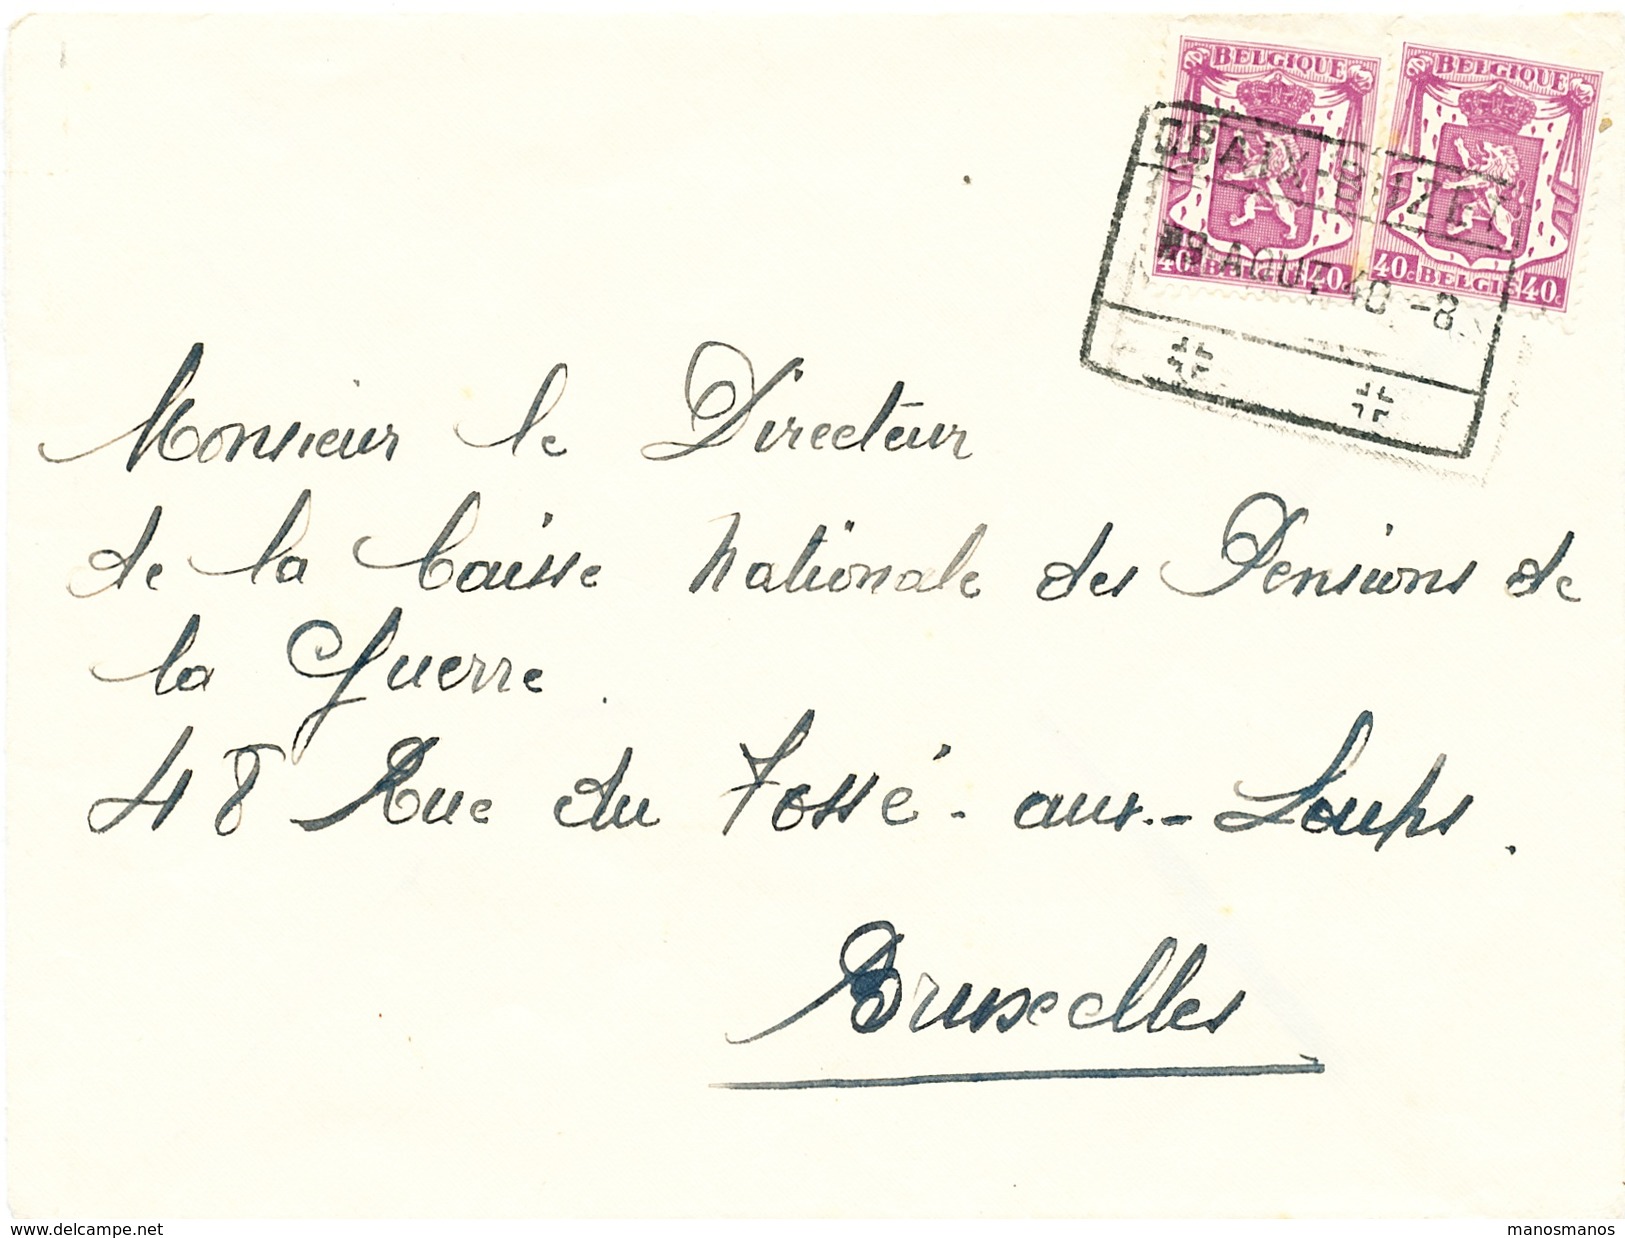 BELGIQUE BELGIQUE
OBAIX-BUZET
AOUT 40 -8
40c BELGIE 40c 40c BELGIE 40c
Monsieur le Directeur
de la Caisse Nationale des Pensions de
la Guerre.
48 Rue du Fossé-aux-Loups.
Bruxelles
www.delcampe.net
manosmanos